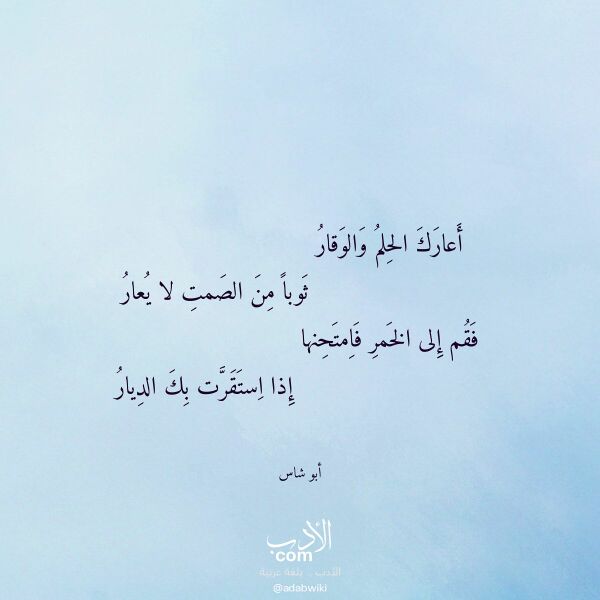 أَعارَكَ الحِلمُ وَالوَقارُ
ثَوباً مِنَ الصَمتِ لا يُعارُ
فَقُم إِلى الخَمرِ فَاِمتَحِنها
إِذا اِستَقَرَّت بِكَ الدِيارُ
أبو شاس
الأدب
com
الأدب .. بلغة عربية
@adabwiki